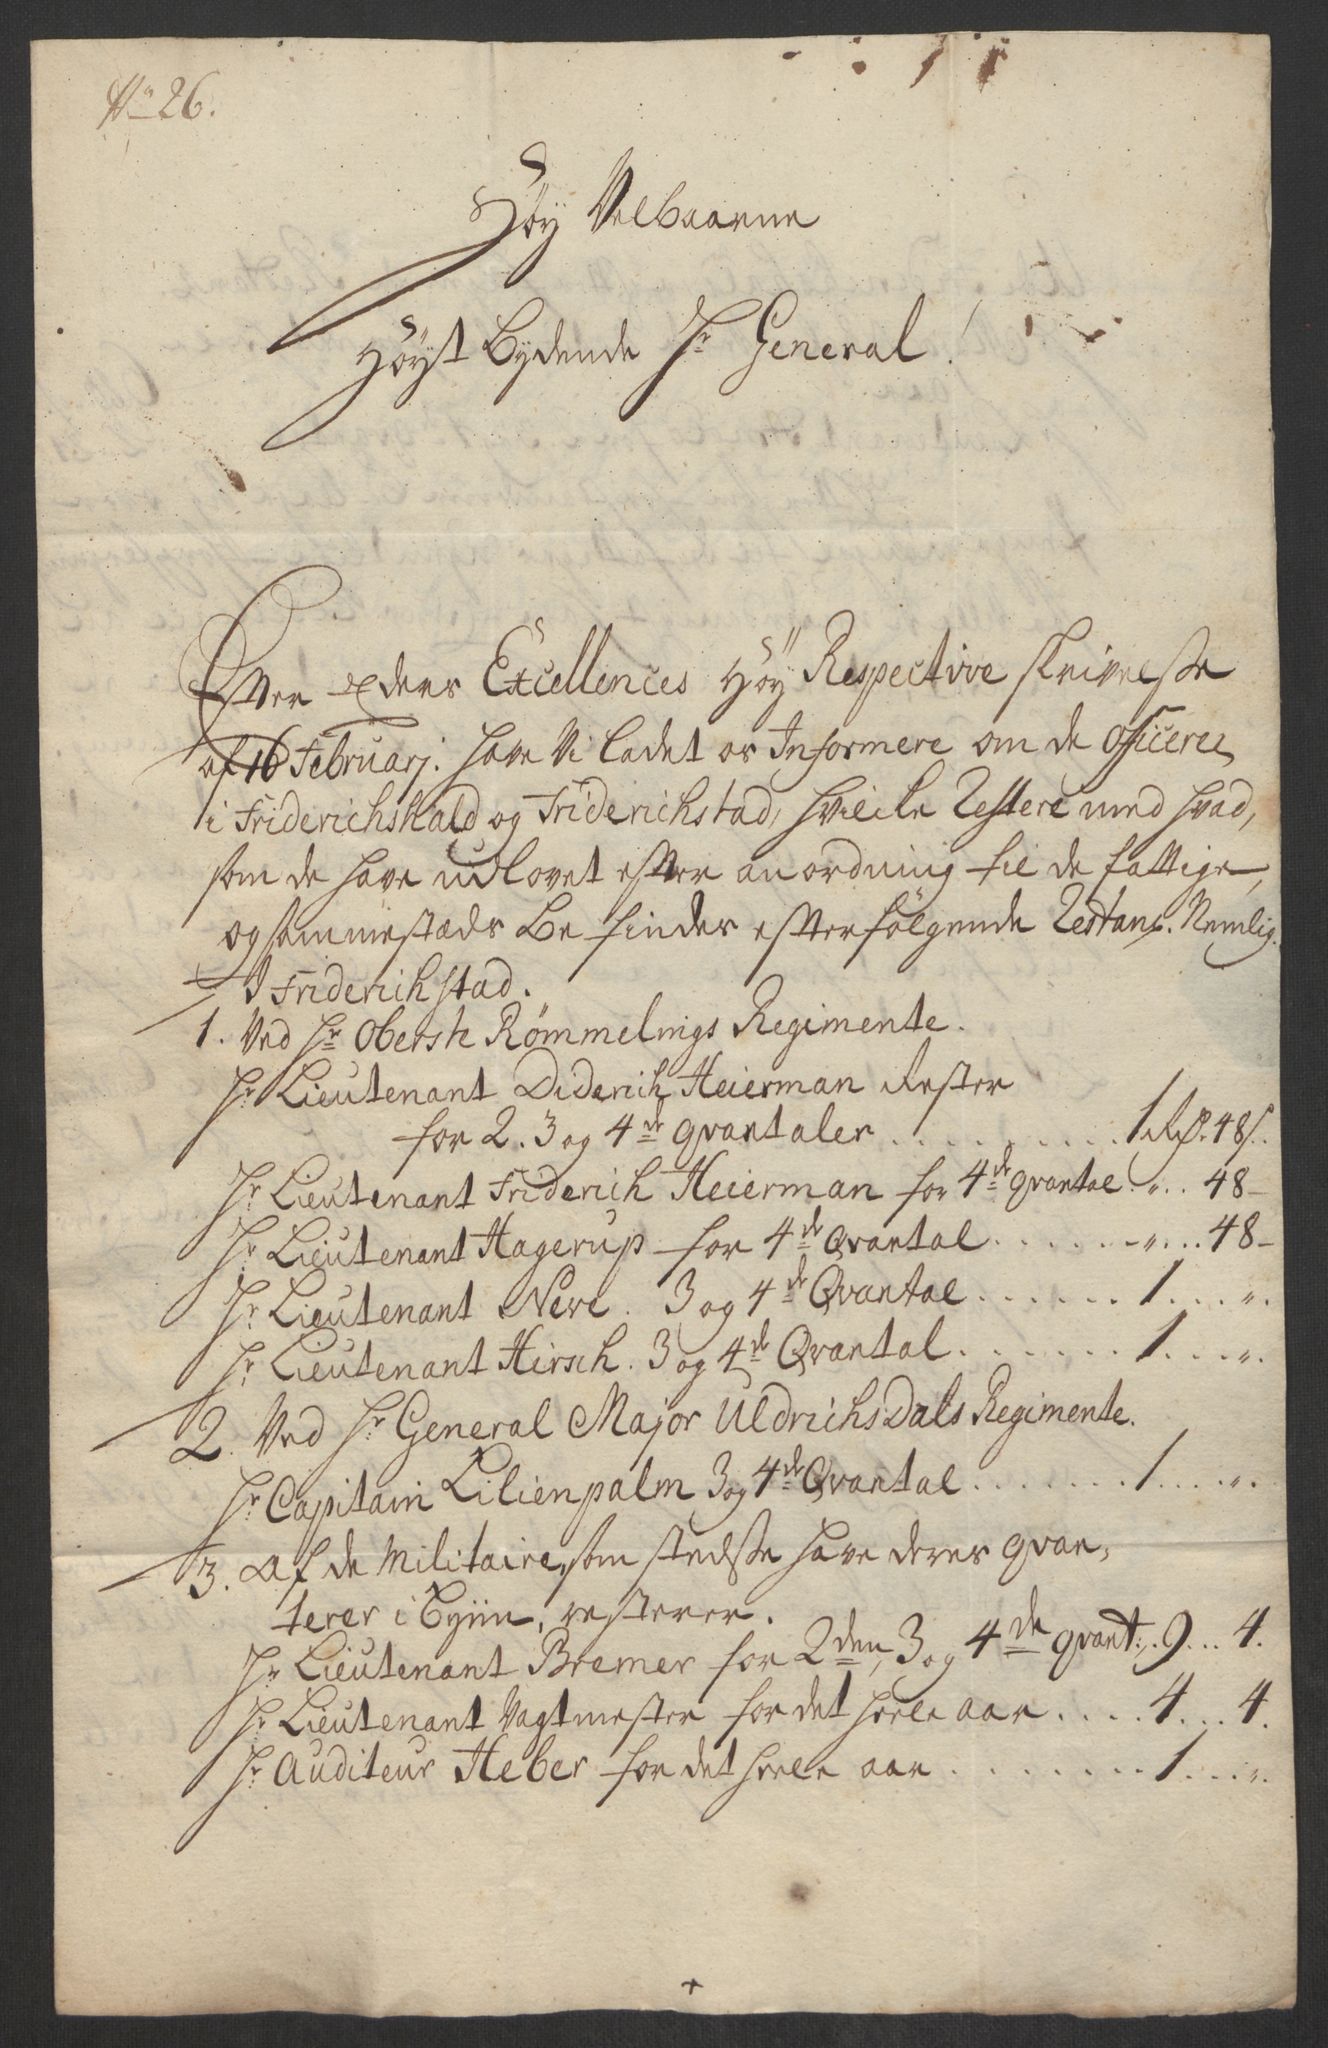 No 26.
Høy Velbaarne
Høyst Bydende Hr General!
Efter Eders Excellences Høy Respective skrivelse
af 16 Februarj. have Vi ladet os Informere om de Officerer
i Friderichshald og Friderichstad, hvilcke Restere med hvad,
som de have udlovet efter anordning til de fattige,
og sammestæds befindes efterfølgende Restanz. Nemlig.
I Friderichstad.
1. Ved Hr Oberste Rømmelings Regimente.
Hr Lieutenant Diderich Heierman Rester
for 2. 3 og 4de qvantaler . . . . . . . . . 1 Rd. 48 s.
Hr Lieutenant Friderich Heierman for 4de qvantal . „ . . 48 -
Hr Lieutenant Hagerup for 4de Qvantal . . . . . . - „ . . . 48 -
Hr Lieutenant Nere . 3 og 4de Qvantal . . . . . . 1 . . . „ .
Hr Lieutenant Hirsch . 3 og 4de Qvantal . . . . . . . 1 . . . „ .
2. Ved Hr General Major UldrichsDals Regimente.
Hr Capitain Lilienpalm 3 og 4de Qvantal . . . . . . . 1 . . . . „ .
3. Af de Militaire, som stedse have deres qvar,
terer i Byen, resterer.
Hr Lieutenant Bremer for 2den, 3 og 4de qvant: . 9 . . . 4.
Hr Lieutenant Vagtmester for det heele aar . . . . 4 . . . 4.
Hr Auditeur Heber for det heele aar . . . . . . . . 1 . . . „ .